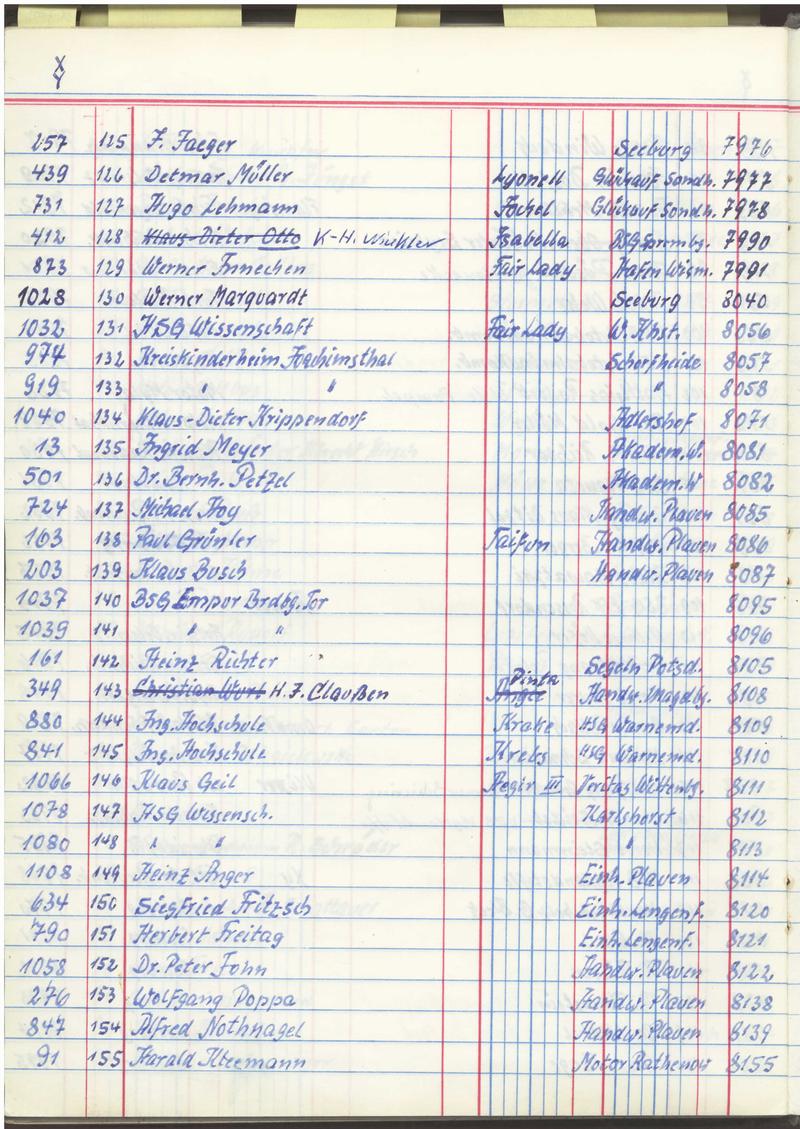 X
Y
257 125 F. Jaeger Seeburg 7976
439 126 Detmar Müller Lyonell Glückauf Sondh. 7977
731 127 Hugo Lehmann Jockel Glückauf Sondh. 7978
412 128 Klaus-Dieter Otto K-H. Winkler Isabella BSG Spremb. 7990
873 129 Werner Innecken Fair Lady Hafen Wism. 7991
1028 130 Werner Marquardt Seeburg 8040
1032 131 HSG Wissenschaft Fair Lady W. Khst. 8056
974 132 Kreiskinderheim Joachimsthal Schorfheide 8057
919 133 " " " 8058
1040 134 Klaus-Dieter Krippendorf Adlershof 8071
13 135 Ingrid Meyer Akadem.W. 8081
501 136 Dr. Bernh. Petzel Akadem.W 8082
724 137 Michael Hoy Handw. Plaven 8085
163 138 Paul Grünler Taifun Handw. Plaven 8086
203 139 Klaus Busch Handw. Plaven 8087
1037 140 BSG Empor Brdbg. Tor 8095
1039 141 " " 8096
161 142 Heinz Richter Segeln Potsd. 8105
349 143 Christian Wurl H.J. Claußen Pinta Handw. Magdbg. 8108
880 144 Ing. Hochschule Krake HSG Warnemd. 8109
841 145 Ing. Hochschule Krebs HSG Warnemd. 8110
1066 146 Klaus Geil Aegir III Veritas Wittenbg. 8111
1078 147 HSG Wissensch. Karlshorst 8112
1080 148 " " " 8113
1108 149 Heinz Anger Einh. Plaven 8114
634 150 Siegfried Fritzsch Einh. Lengenf. 8120
790 151 Herbert Freitag Einh. Lengenf. 8121
1058 152 Dr. Peter John Handw. Plaven 8122
276 153 Wolfgang Poppa Handw. Plaven 8138
847 154 Alfred Nothnagel Handw. Plaven 8139
91 155 Harald Motor Rathenow 8155